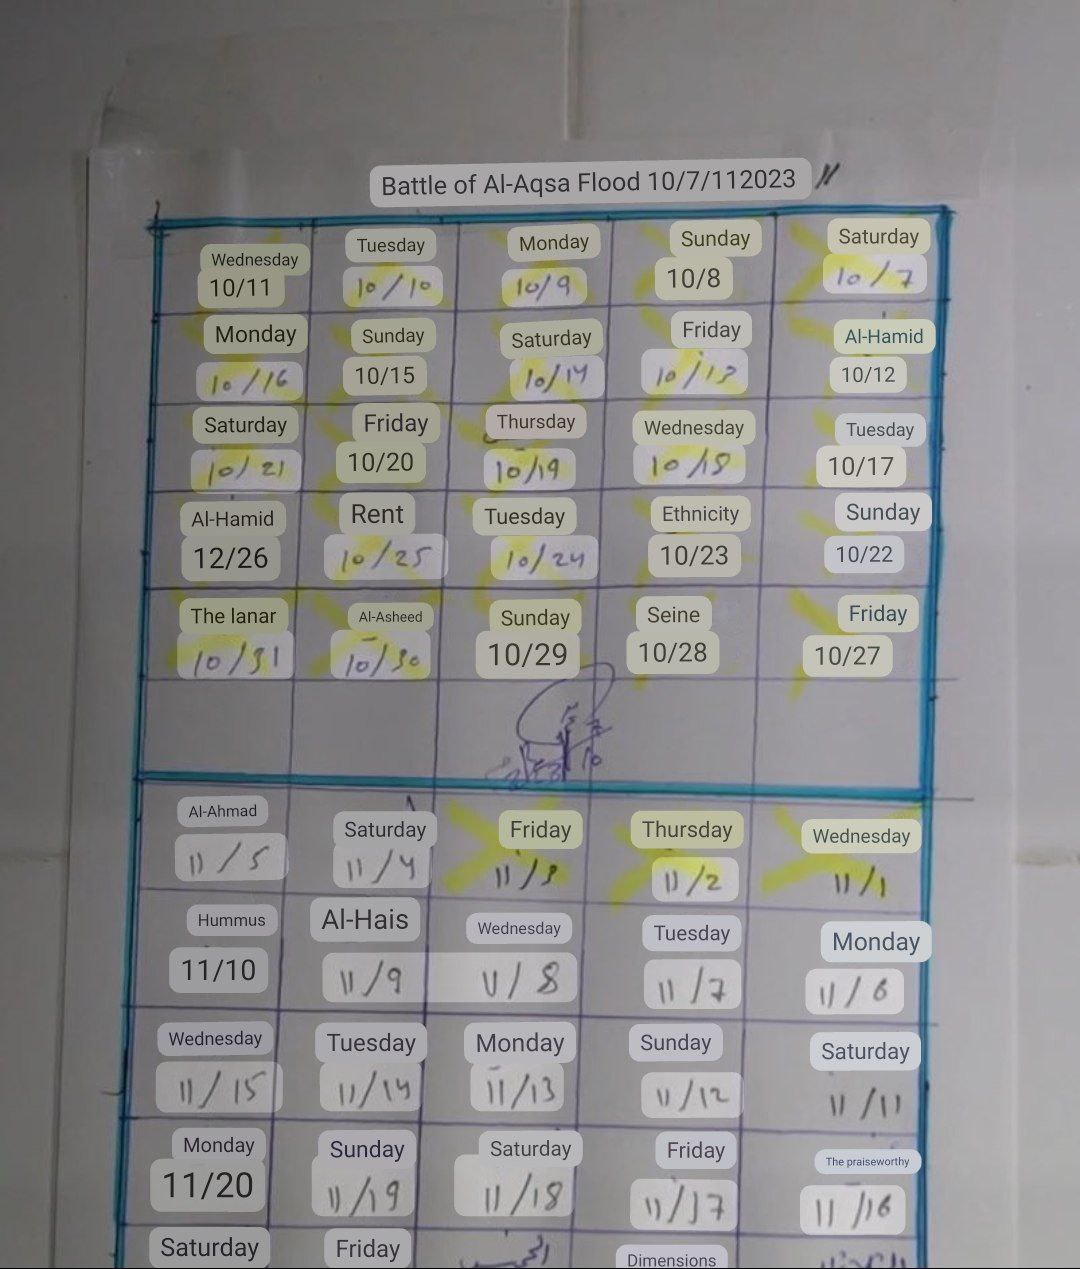 Battle of Al-Aqsa Flood 10/7/112023 //
Wednesday Tuesday Monday Sunday Saturday
10/11 10/10 10/9 10/8 10/7
Monday Sunday Saturday Friday Al-Hamid
10/16 10/15 10/14 10/13 10/12
Saturday Friday Thursday Wednesday Tuesday
10/21 10/20 10/19 10/18 10/17
Al-Hamid Rent Tuesday Ethnicity Sunday
12/26 10/25 10/24 10/23 10/22
The lanar Al-Asheed Sunday Seine Friday
10/31 10/30 10/29 10/28 10/27
Al-Ahmad Saturday Friday Thursday Wednesday
11/5 11/4 11/3 11/2 11/1
Hummus Al-Hais Wednesday Tuesday Monday
11/10 11/9 11/8 11/7 11/6
Wednesday Tuesday Monday Sunday Saturday
11/15 11/14 11/13 11/12 11/11
Monday Sunday Saturday Friday The praiseworthy
11/20 11/19 11/18 11/17 11/16
Saturday Friday Dimensions